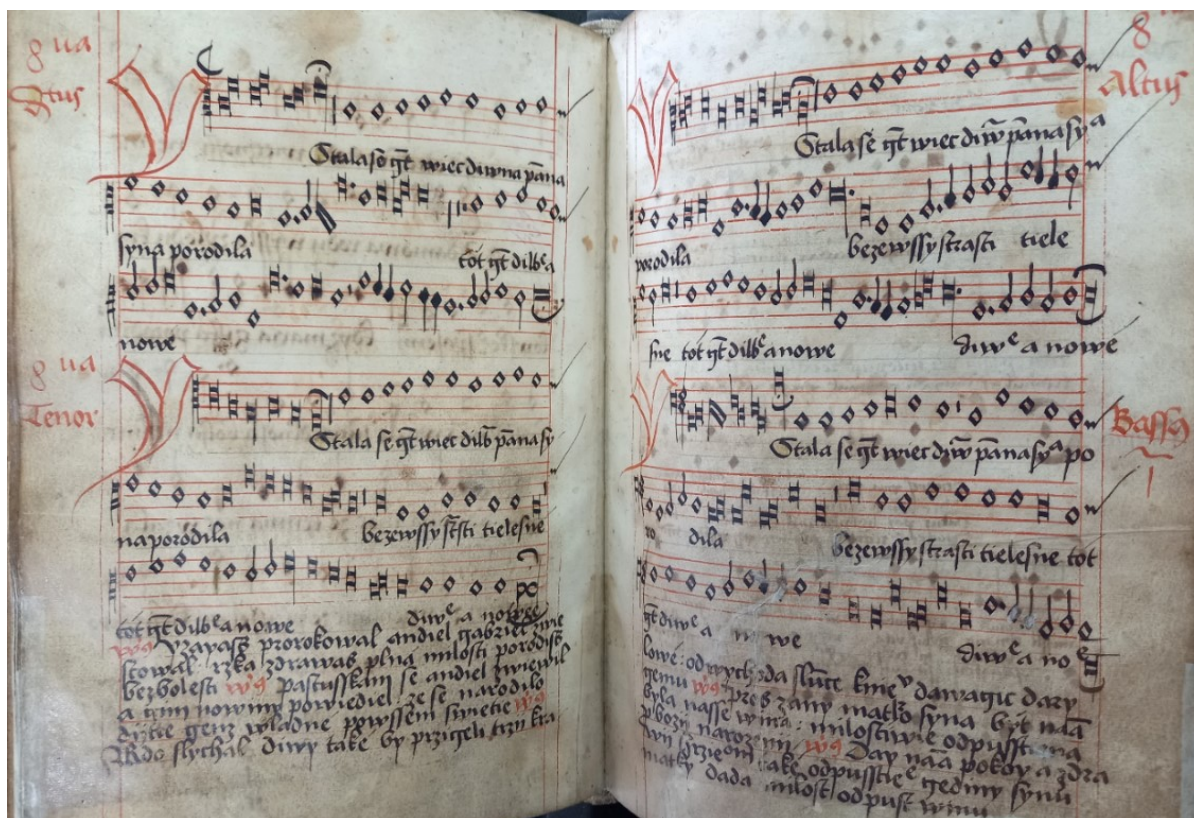 8 ua
Stala se gt wiec diwna pana
syna porodila tot gt dilbe a
nowe
8 ua
Tenor
Stala se gt wiec dilb pana sy
na porodila bezewssy ststi tielesne
tot gt dilbe a nowe diwe a nowe
Uzawass prorokowal andiel gabriel
stowal rzka zdrawas plna milosti porodiss
bezbolesti ws pastusskam se andiel zwiewil
a gim nowinu powiediel ze se narodilo
dijtie genz wladne powssem swietie ws
Kdo slychal diwy take by przigeli trzij kra
8
Altus
Stala se gt wiec diw pana sya
porodila bezewssy strasti tiele
sne tot gt dilbe a nowe diwe a nowe
Bassus
Stala se gt wiec diw pana sya po
ro dila bezewssy strasti tielesne tot
gt diwe a no we diwe a no
lowe od wychoda slunce kniez dawagic dary
gemu ws pres zanu matku syna byt nam
byla nasse wina milostiwie odpusstiena
bozij narozenij ws Day nam pokoy a zdra
take odpusstie gediny synu
matky dada milost odpust winu